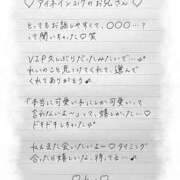 ♡アイネインユウのお兄さん♡
とってもお話しやすくて、○○○…？
って聞いちゃった♡笑
VIP久しぶりだったみたいで…
れいのこと見つけてくれて、選んで
くれてありがとう
「本当に可愛い子にしか可愛いって
言わないよ〜」って、嬉しかった…♡
ドキドキしちゃった♡
ねぇまた会いたいな♡タイミング
合ったら嬉しいな、待ってる…♡